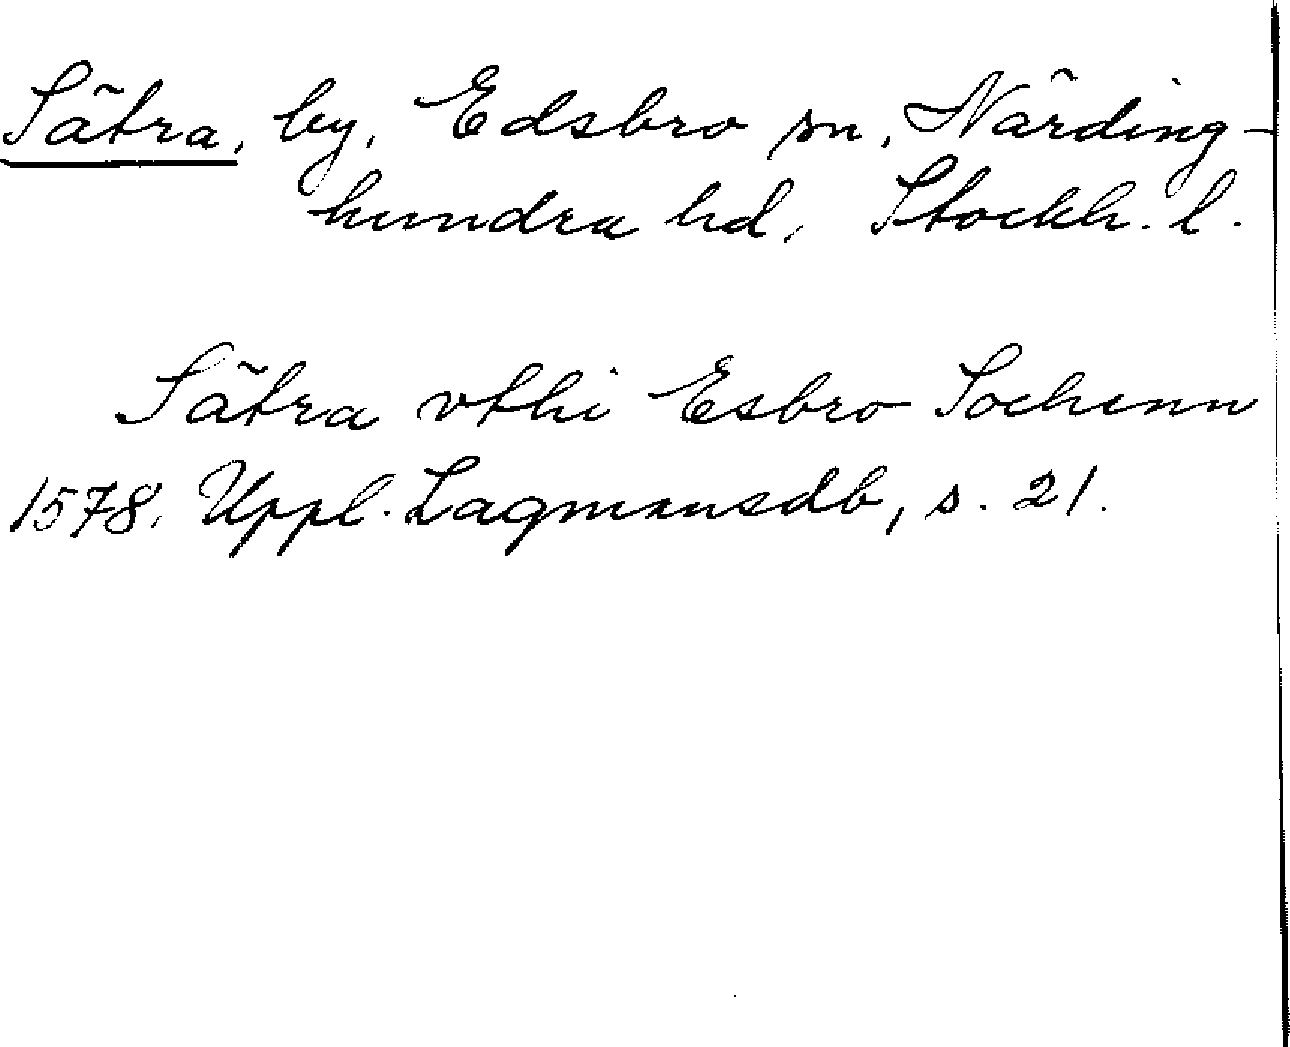 Sätra, by, Edsbro sn, Närding-
hundra hd, Stockh. l.
Sätra vthi Esbro Sochenn
1578. Uppl. Lagmansdb, s. 21.